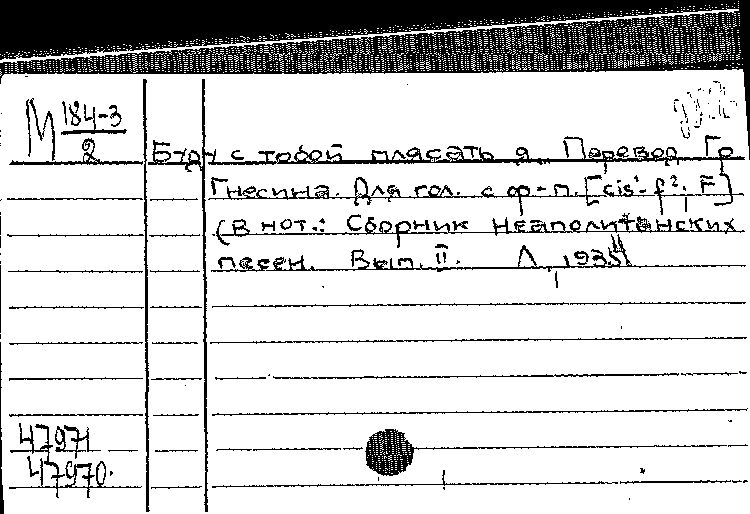 М 184-3
2
Буду с тобой плясать я. Перевод Гр
Гнесина. Для гол. с ф-п. [cis¹-f²; F]
(В нот.: Сборник неаполитанских
песен. Вып. II. Л 1935)
47971
47970.